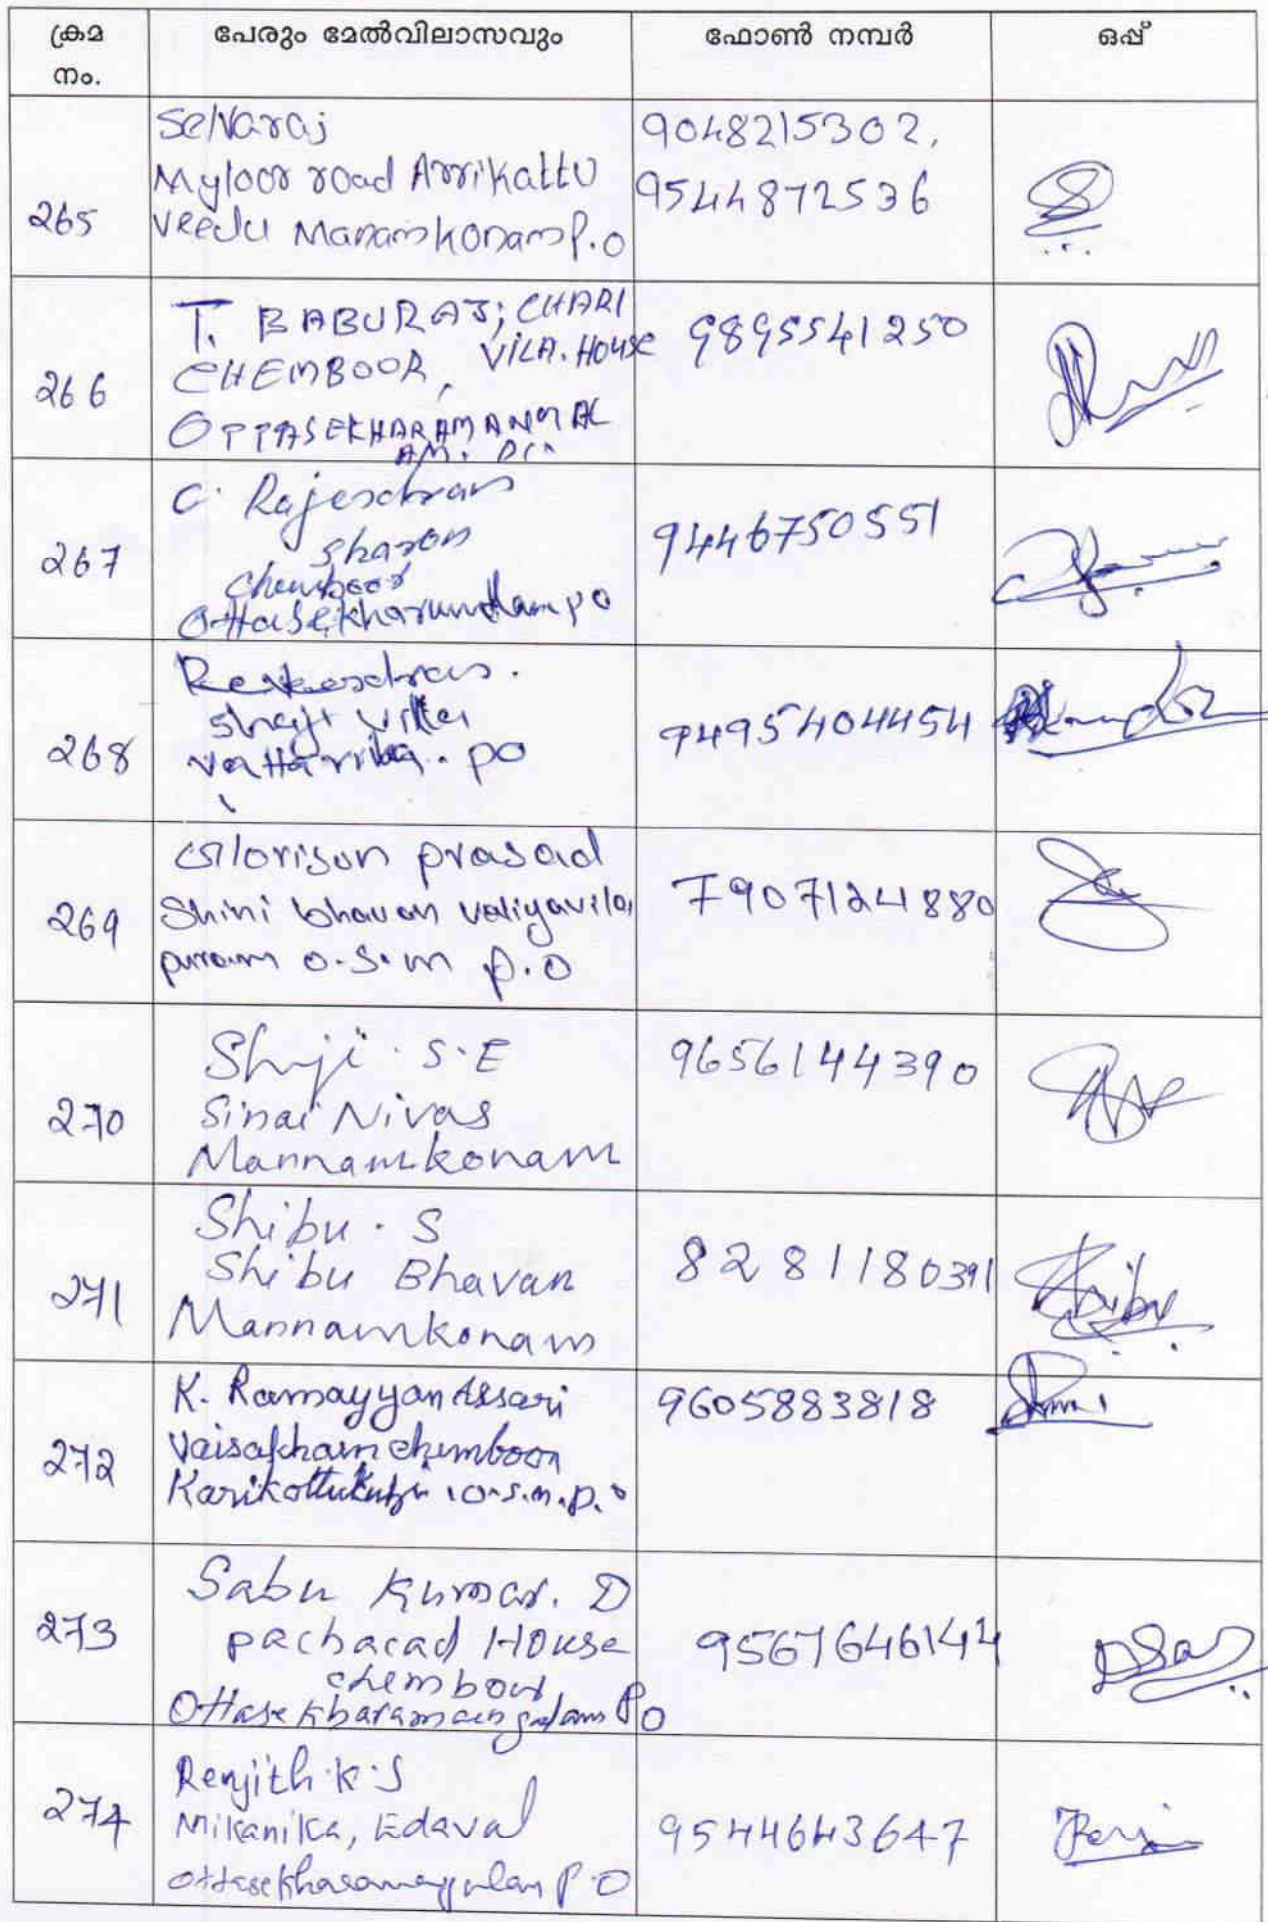 ക്രമ നം. പേരും മേൽവിലാസവും ഫോൺ നമ്പർ ഒപ്പ്
265
Selvaraj
Myloor road Arrikattu
Veedu Manamkonam P.O
9048215302,
9544872536
266
T. BABURAJ; CHARI
VILA. HOUSE
CHEMBOOR,
9895541250
267
C. Rajendran
Sharon
Chemboor
9446750551
268
Shaji Villa
PO
9495404454
269
Glorison prasad
Shini bhavan valiyavila
puram O.S.M P.O
7907124880
270
Shiji . S . E
Sinai Nivas
Mannamkonam
9656144390
271
Shibu . S
Shibu Bhavan
Mannamkonam
8281180391
Shibu
272
K. Ramayyan Assari
Vaisakham chemboor
O.S.M.P.O
9605883818
273
Sabu Kumar. D
pachacad House
chemboor
Ottasekharamangalam PO
9567646144
274
Renjith . K . S
Mikanika, Edaval
Ottasekharamangalam P.O
9544643647